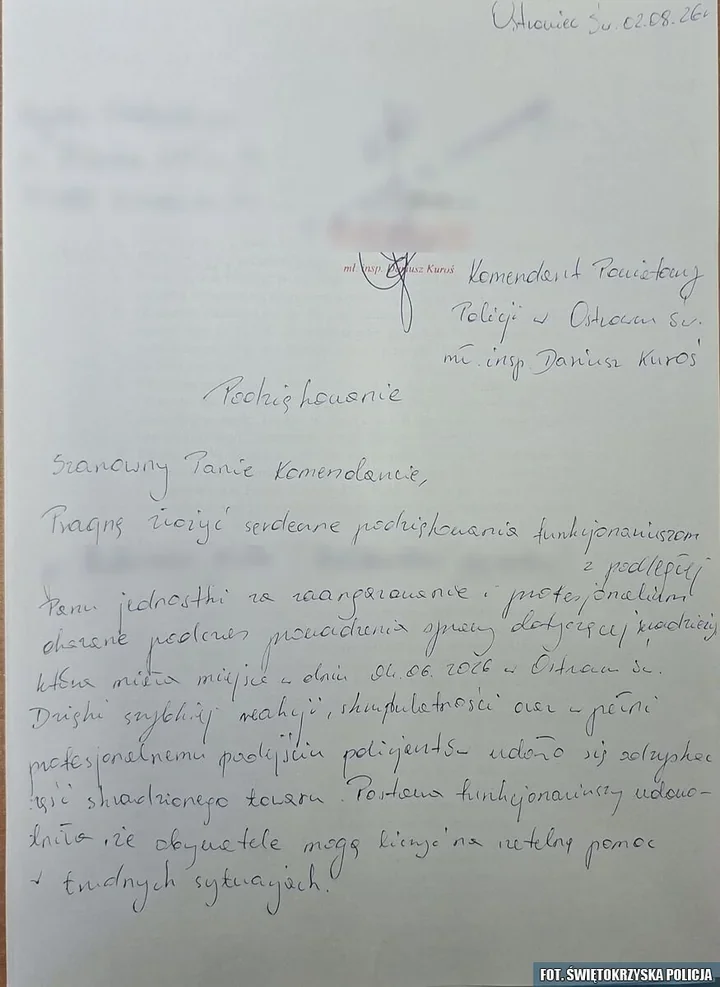 Ostrowiec Św. 02.08.26r
mł. insp. Dariusz Kuroś
Komendant Powiatowy
Policji w Ostrowcu Św.
mł. insp Dariusz Kuroś
Podziękowanie
Szanowny Panie Komendancie,
Pragnę złożyć serdeczne podziękowania funkcjonariuszom
z podległej
Panu jednostki za zaangażowanie i profesjonalizm
okazane podczas prowadzenia sprawy dotyczącej kradzieży
która miała miejsce w dniu 04.06.2026 w Ostrowcu Św.
Dzięki szybkiej reakcji, skrupulatności oraz w pełni
profesjonalnemu podejściu policjantów udało się odzyskać
część skradzionego towaru. Postawa funkcjonariuszy udowo-
dniła, że obywatele mogą liczyć na rzetelną pomoc
w trudnych sytuacjach.
FOT. ŚWIĘTOKRZYSKA POLICJA